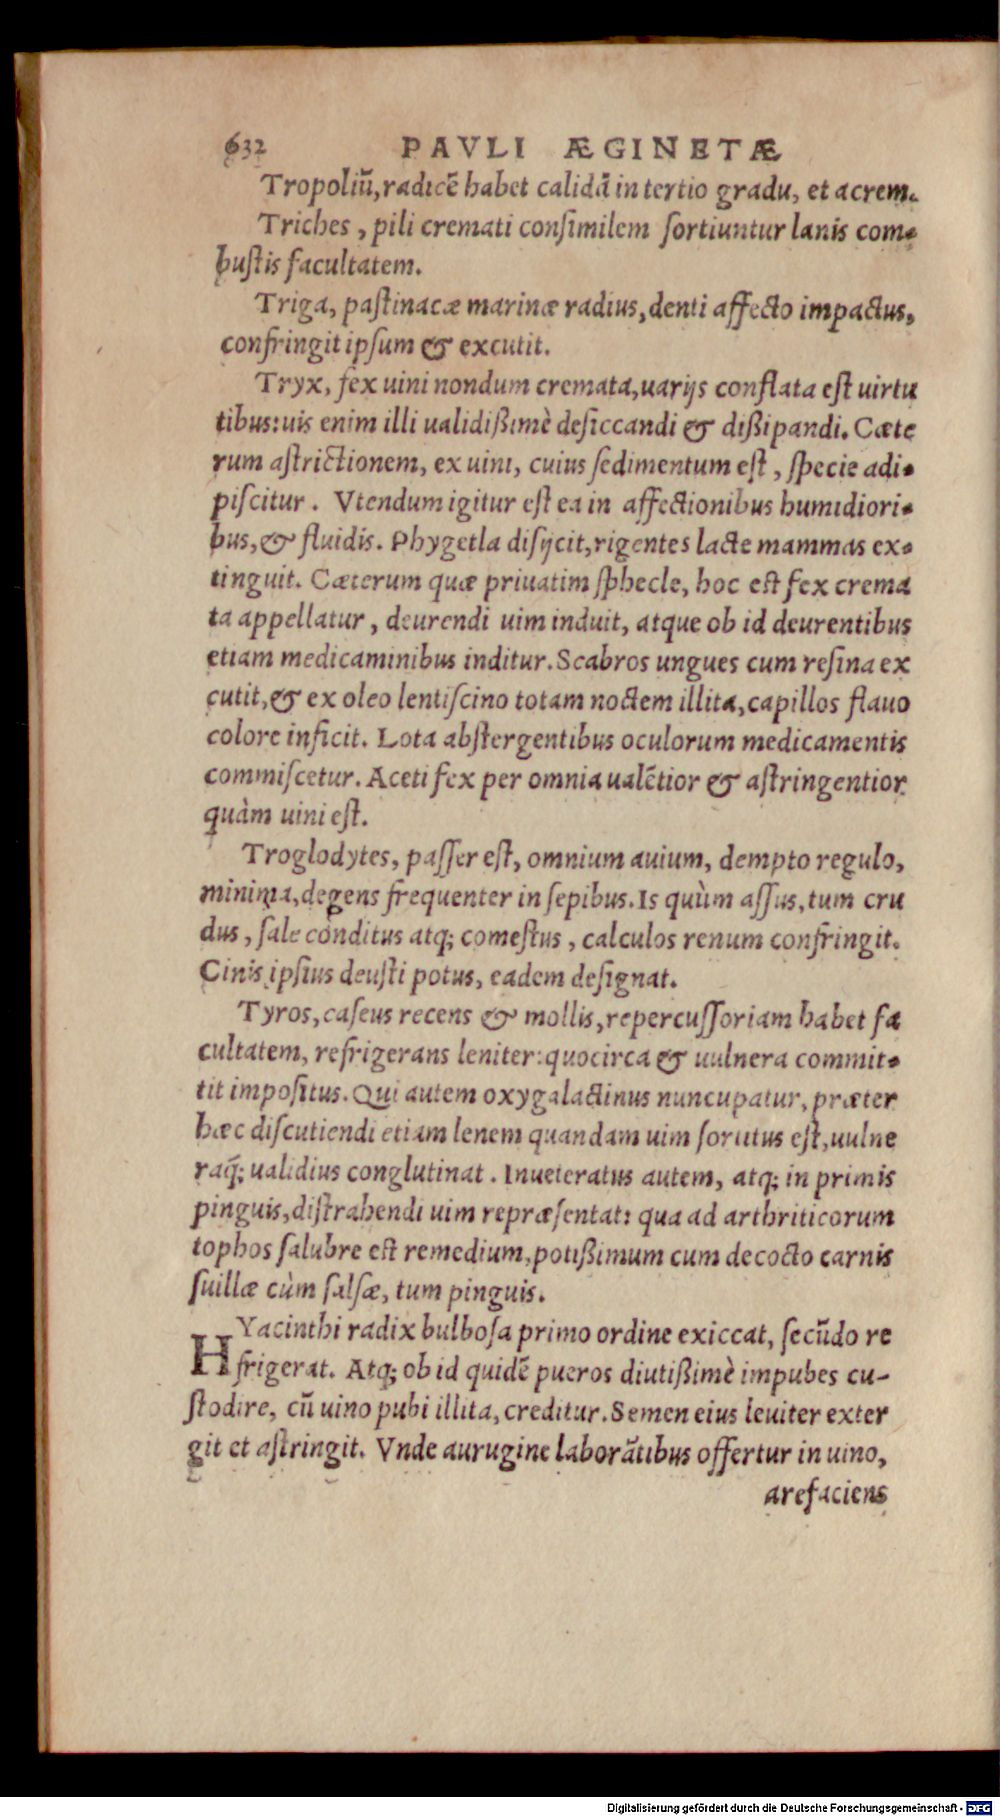 632 PAVLI ÆGINETÆ
Tropoliũ, radicẽ habet calidã in tertio gradu, et acrem.
Triches, pili cremati consimilem sortiuntur lanis com-
bustis facultatem.
Triga, pastinacæ marinæ radius, denti affecto impactus,
confringit ipsum & excutit.
Tryx, fex uini nondum cremata, uarijs conflata est uirtu
tibus: uis enim illi ualidißimè desiccandi & dißipandi. Cæte
rum astrictionem, ex uini, cuius sedimentum est, specie adi-
piscitur. Vtendum igitur est ea in affectionibus humidiori-
bus, & fluidis. Phygetla disijcit, rigentes lacte mammas ex-
tinguit. Cæterum quæ priuatim sphecle, hoc est fex crema
ta appellatur, deurendi uim induit, atque ob id deurentibus
etiam medicaminibus inditur. Scabros ungues cum resina ex
cutit, & ex oleo lentiscino totam noctem illita, capillos flauo
colore inficit. Lota abstergentibus oculorum medicamentis
commiscetur. Aceti fex per omnia ualẽtior & astringentior
quàm uini est.
Troglodytes, passer est, omnium auium, dempto regulo,
minima, degens frequenter in sepibus. Is quùm assus, tum cru
dus, sale conditus atq; comestus, calculos renum confringit.
Cinis ipsius deusti potus, eadem designat.
Tyros, caseus recens & mollis, repercussoriam habet fa
cultatem, refrigerans leniter: quocirca & uulnera commit-
tit impositus. Qui autem oxygalactinus nuncupatur, præter
hæc discutiendi etiam lenem quandam uim sortitus est, uulne
raq̃; ualidius conglutinat. Inueteratus autem, atq; in primis
pinguis, distrahendi uim repræsentat: qua ad arthriticorum
tophos salubre est remedium, potißimum cum decocto carnis
suillæ cùm salsæ, tum pinguis.
HYacinthi radix bulbosa primo ordine exiccat, secũdo re
frigerat. Atq; ob id quidẽ pueros diutißimè impubes cu-
stodire, cũ uino pubi illita, creditur. Semen eius leuiter exter
git et astringit. Vnde aurugine laborãtibus offertur in uino,
arefaciens
Digitalisierung gefördert durch die Deutsche Forschungsgemeinschaft - DFG